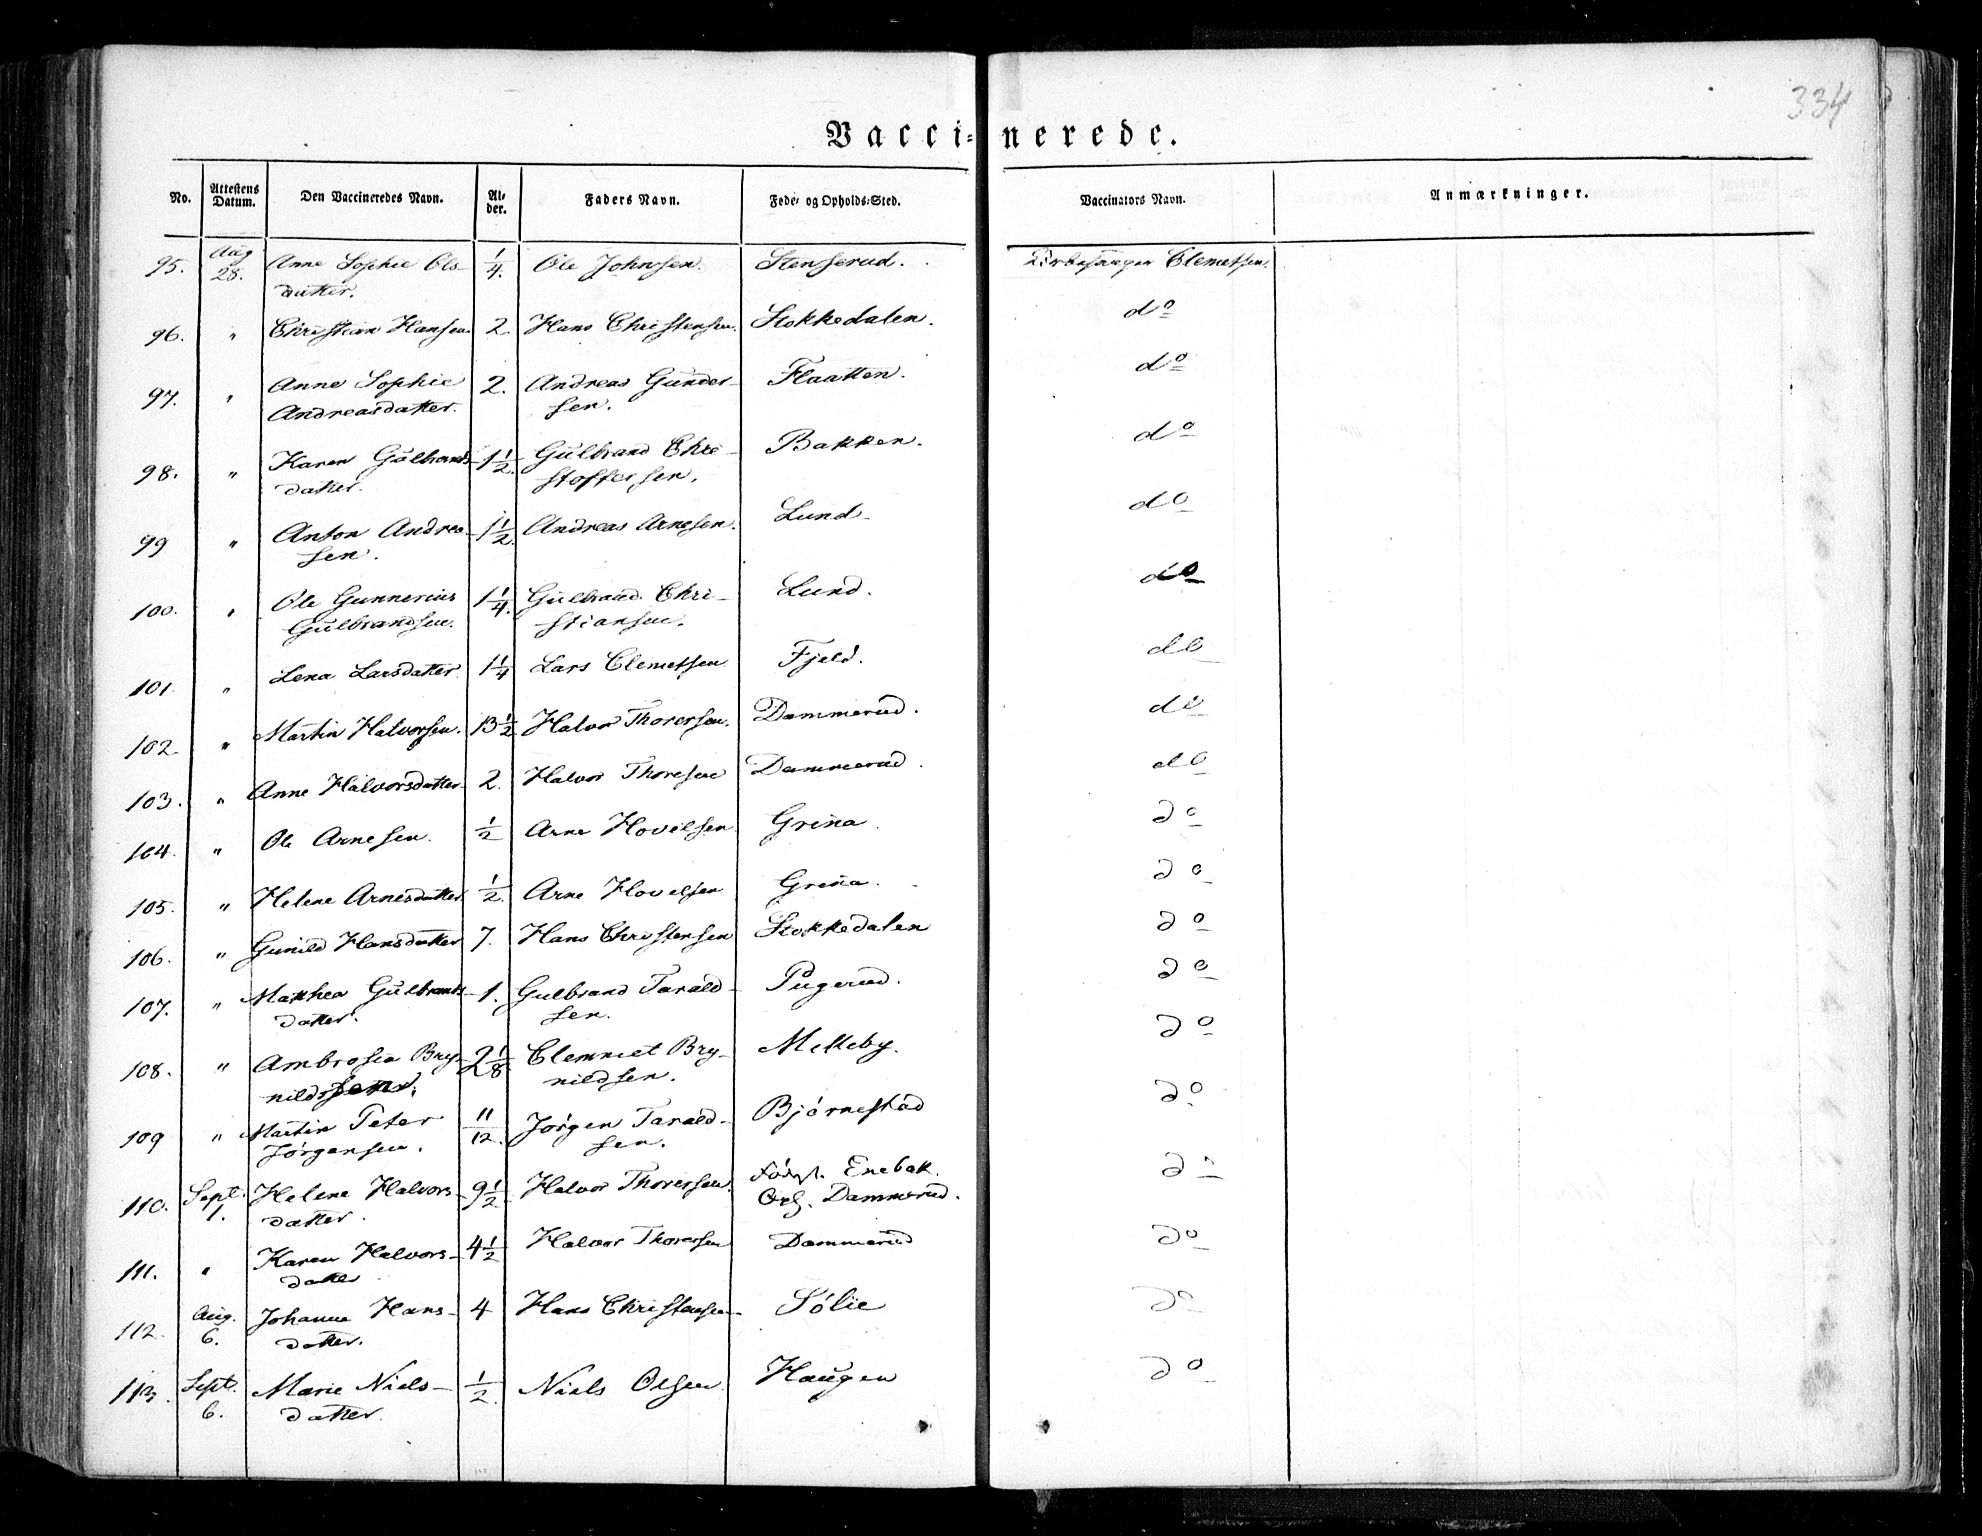 334
Vaccinerede.
No. Attestens Datum. Den Vaccineredes Navn. Alder. Faders Navn. Føde- og Opholds-Sted. Vaccinators Navn. Anmærkninger.
95. Aug 28. Anne Sophie Ols- 1/4. Ole Johnsen. Stenserud. Kirkesanger Clemetsen.
datter.
96. " Christian Hansen 2. Hans Christensen. Stokkedalen. do
97. " Anne Sophie 2. Andreas Gunder- Flaatten. do
Andreasdatter. sen.
98. " Karen Gulbrands- 1 1/2. Gulbrand Chri- Bakken. do
datter. stoffersen.
99 " Anton Andrea- 1 1/2. Andreas Arnesen. Lund. do
sen.
100. " Ole Gunnerius 1 1/4. Gulbrand Chri- Lund. do
Gulbrandsen. stiansen.
101. " Lena Larsdatter. 1 1/4 Lars Clemetsen Fjeld. do
102. " Martin Halvorsen. 13 1/2 Halvor Thorersen. Dammerud. do
103. " Anne Halvorsdatter 2. Halvor Thoresen Dammerud. do
104. " Ole Arnesen. 1/2 Arne Hovelsen Grina. do
105. " Helene Arnesdatter 1/2. Arne Hovelsen Grina. do
106. " Gunild Hansdatter 7. Hans Christensen Stokkedalen do
107. " Mathea Gulbrands- 1. Gulbrand Tarald- Pugerud. do
datter. sen.
108. " Ambrosia Bry- 2 1/8 Clemmet Bry- Melleby. do
nilds nildsen.
109 " Martin Peter 11/12. Jørgen Tarald- Bjørnestad do
Jørgensen. sen.
110. Sept. 1. Helene Halvors- 9 1/2 Halvor Thorersen. Født. Enebak. do
datter. Oph. Dammerud.
111. " Karen Halvors- 4 1/2 Halvor Thorersen Dammerud do
datter
112. Aug. 6. Johanne Hans- 4 Hans Christensen Sølie do
datter.
113. Sept. 6. Marie Niels- 1/2 Niels Olsen Haugen do
datter.